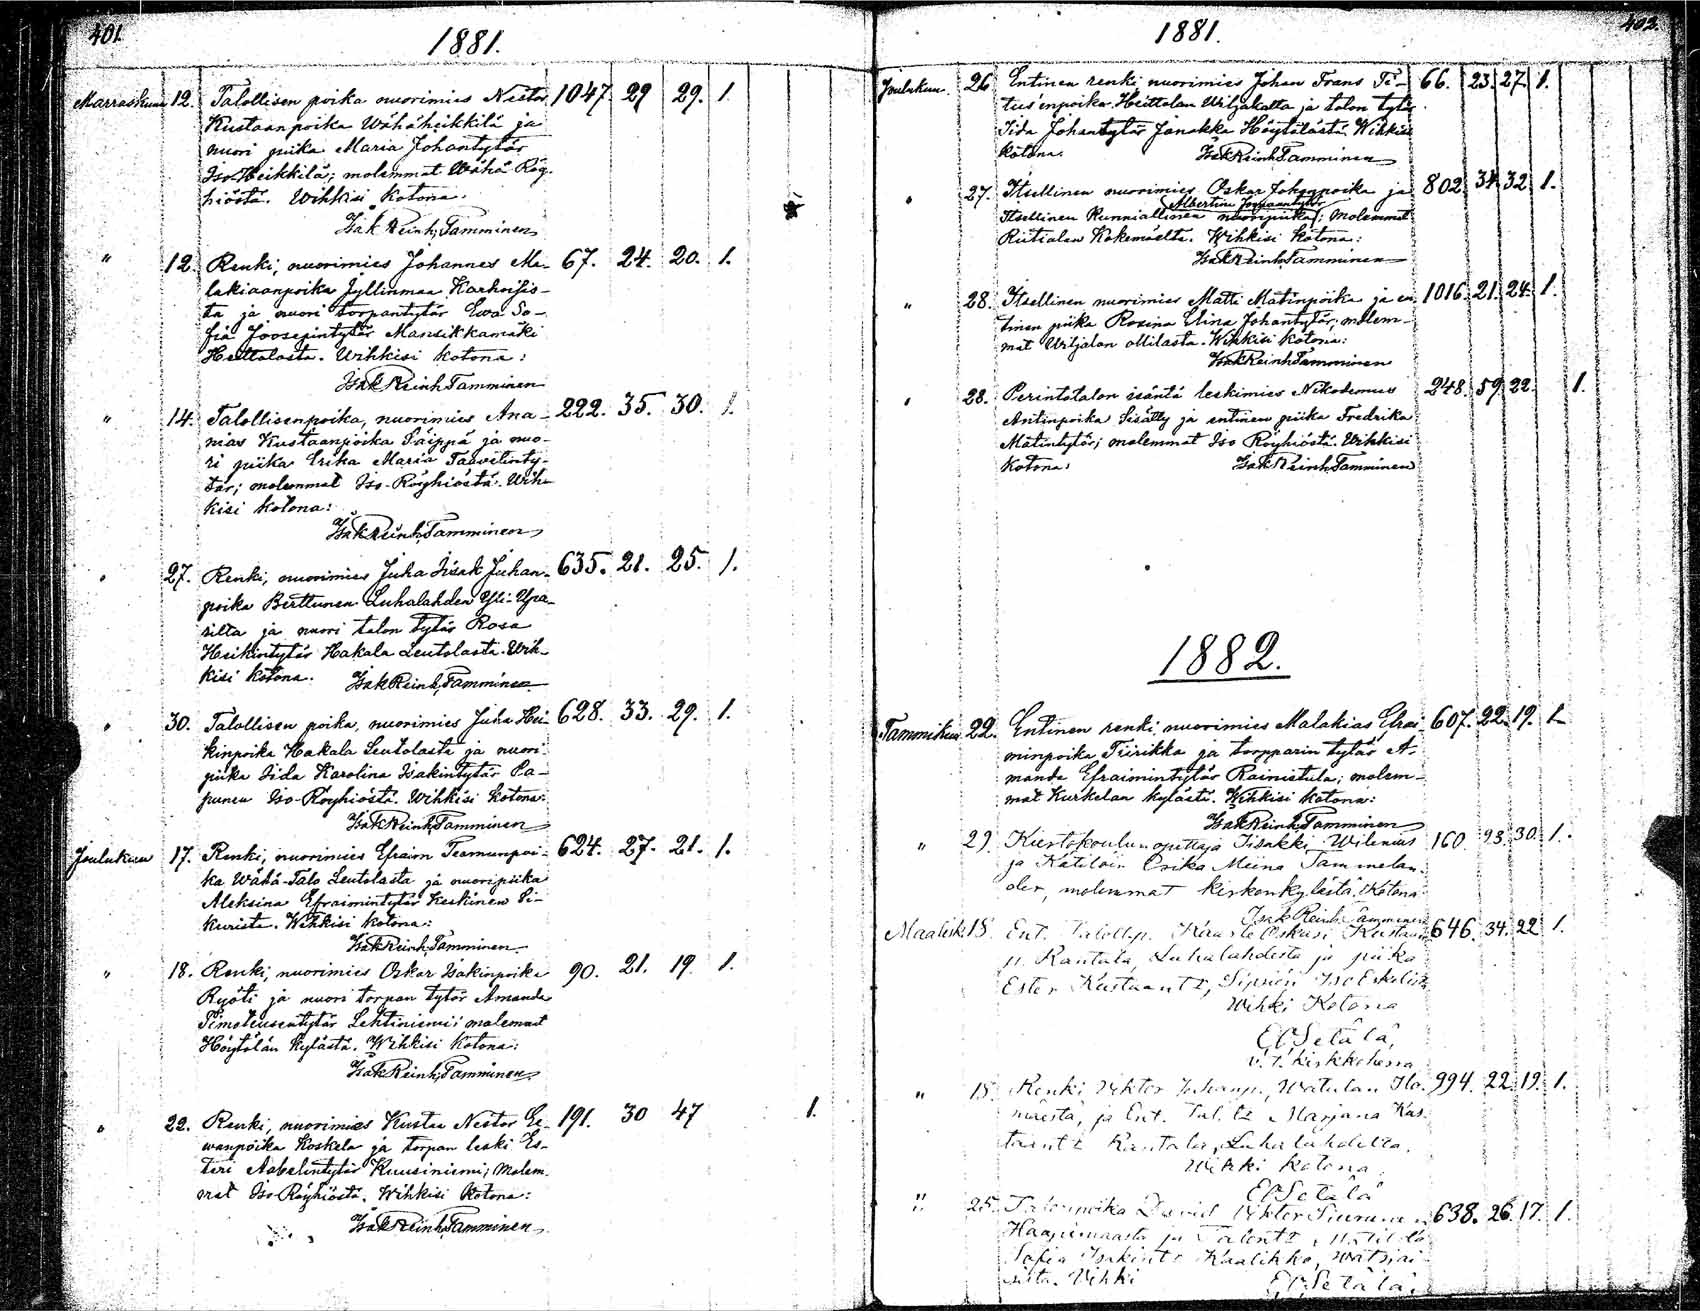 401.
1881.
Marraskuun 12. Talollisen poika nuorimies Nestor 1047 29 29. 1.
Kustaanpoika Wähäheikkilä ja
nuori piika Maria Johantytär
Iso-Heikkilä; molemmat Wähä Röy-
hiöstä. Wihkisi kotona.
Isak Reinh. Tamminen
" 12. Renki, nuorimies Johannes Me- 67. 24. 20. 1.
lakiaanpoika Jyllinmaa Karhoisis-
ta ja nuori torpantytär Ewa So-
fia Joosepintytär Mansikkamäki
Heittolasta. Wihkisi kotona:
Isak Reinh. Tamminen
" 14. Talollisenpoika, nuorimies Ana- 222. 35. 30. 1.
nias Kustaanpoika Päippä ja nuo-
ri piika Erika Maria Taavetinty-
tär; molemmat Iso-Röyhiöstä. Wih-
kisi kotona:
Isak Reinh. Tamminen
" 27. Renki, nuorimies Juha Iisak Juhan- 635. 21. 25. 1.
poika Berttunen Luhalahden Yli-
silta ja nuori talon tytär Rosa
Heikintytär Hakala Leutolasta. Wih-
kisi kotona. Isak Reinh. Tamminen
" 30. Talollisen poika, nuorimies Juha Hei- 628. 33. 29. 1.
kinpoika Hakala Leutolasta ja nuori
piika Iida Karolina Isakintytär Pa-
punen Iso-Röyhiöstä. Wihkisi kotona:
Isak Reinh. Tamminen
Joulukuun 17. Renki, nuorimies Efraim Teemunpoi- 624. 27. 21. 1.
ka Wähä-Talo Leutolasta ja nuoripiika
Aleksina Efraimintytär Keskinen Si-
kurista. Wihkisi kotona:
Isak Reinh. Tamminen
" 18. Renki, nuorimies Oskar Isakinpoika 90. 21. 19 1.
Ryöti ja nuori torpan tytär Amanda
Timoteusentytär Lehtiniemi; molemmat
Höytölän kylästä. Wihkisi kotona:
Isak Reinh. Tamminen
" 22. Renki, nuorimies Kustaa Nestor Ee- 191. 30 47 1.
wanpoika Koskela ja torpan leski Es-
teri Aabelintytär Kuusiniemi; Molem-
mat Iso Röyhiöstä. Wihkisi kotona:
Isak Reinh. Tamminen
402.
1881.
Joulukuu. 26 Entinen renki nuorimies Johan Frans Ti- 66. 23. 27. 1.
tus inpoika Heittolan Wiljakalta ja talon tytär
Iida Johantytär Janakka Höytölästä. Wihkisi
kotona. Isak Reinh. Tamminen
" 27. Itsellinen nuorimies Oskar Johanpoika ja 802. 34. 32. 1.
Albertina
Itsellinen Kunniallinen nuoripiika; molemmat
Riitialan Kokemäeltä. Wihkisi kotona:
Isak Reinh. Tamminen
" 28. Itsellinen nuorimies Matti Matinpoika ja en- 1016. 21. 24. 1.
tinen piika Rosina Elina Johantytär; molem-
mat Wiljalan Ollilasta. Wihkisi kotona:
Isak Reinh. Tamminen
" 28. Perintötalon isäntä leskimies Nikodemus 248. 59. 22. 1.
Antinpoika Sisätty ja entinen piika Fredrika
Matintytär; molemmat Iso Röyhiöstä. Wihkisi
kotona: Isak Reinh. Tamminen
1882.
Tammikuu 22. Entinen renki, nuorimies Malakias Efrai- 607. 22. 19. 1.
minpoika Tiirikka ja torpparin tytär A-
manda Efraimintytär Rainistula; molem-
mat Kurkelan kylästä. Wihkisi kotona:
Isak Reinh. Tamminen
" 29. Kiertokoulunopettaja Iisakki Wilenius 160. 23. 30. 1.
ja Kätilöin Erika Miina Tammelan-
der, molemmat kirkonkylästä, Kotona:
Isak Reinh. Tamminen
Maalisk. 18. Ent. Talollp. Kaarle Oskari Kustaan 646. 34. 22 1.
p. Rantala, Luhalahdesta ja piika
Ester Kustaant:r, Sipsiön Iso Eskolista
Wihki Kotona
E. Setälä,
v.t. kirkkoherra
" 18. Renki Viktor Juhanp. Watulan Ila- 994. 22. 19. 1.
mäestä, ja Ent. Tal. t:r Marjana Kus-
taant:r Rantala, Luhalahdelta.
Wihki kotona.
E. Setälä
" 25. Talonpoika David Viktor 638. 26. 17. 1.
ja Talont:r Matilda
Sofia Isakint:r Kaalikko,
Vihki
E. Setälä.